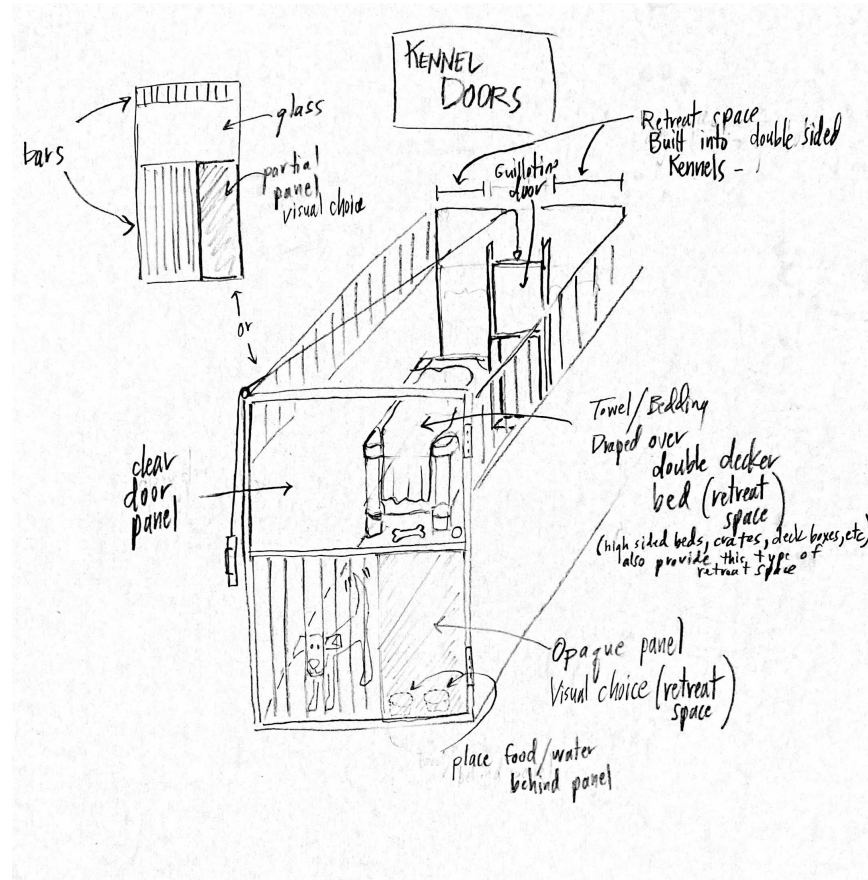 KENNEL
DOORS
bars
glass
partial
panel
visual choice
or
Guillotine
door
Retreat space
Built into double sided
Kennels -
clear
door
panel
Towel/Bedding
Draped over
double decker
bed (retreat
space)
(high sided beds, crates, deck boxes, etc,
also provide this type of
retreat space
Opaque panel
Visual choice (retreat
space)
place food/water
behind panel